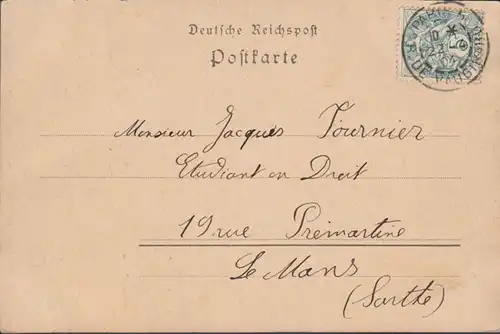 Deutsche Reichspost
Postkarte
Monsieur Jacques Fournier
Etudiant en Droit
19 rue Prémartine
Le Mans
(Sarthe)